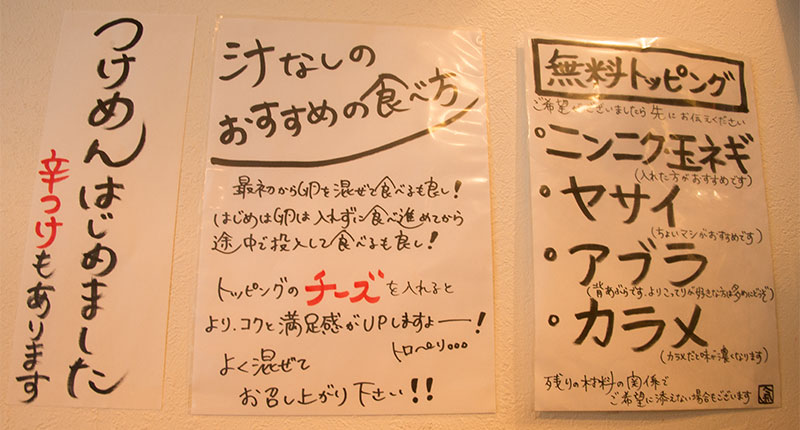 つけめんはじめました
辛つけもあります
汁なしの
おすすめの食べ方
最初からGPを混ぜて食べるも良し!
はじめはGPは入れずに食べ進めてから
途中で投入して食べるも良し!
トッピングのチーズを入れると
より、コクと満足感がUPしますよー!
トロ〜り。。。
よく混ぜて
お召し上がり下さい!!
無料トッピング
ご希望ございましたら先にお伝えください
・ニンニク・玉ネギ
(入れた方がおすすめです)
・ヤサイ
(ちょいマシがおすすめです)
・アブラ
(背あぶらです。よりこってりが好きな方は多めにどうぞ)
・カラメ
(カラメだと味が濃くなります)
残りの材料の関係で
ご希望に添えない場合もございます